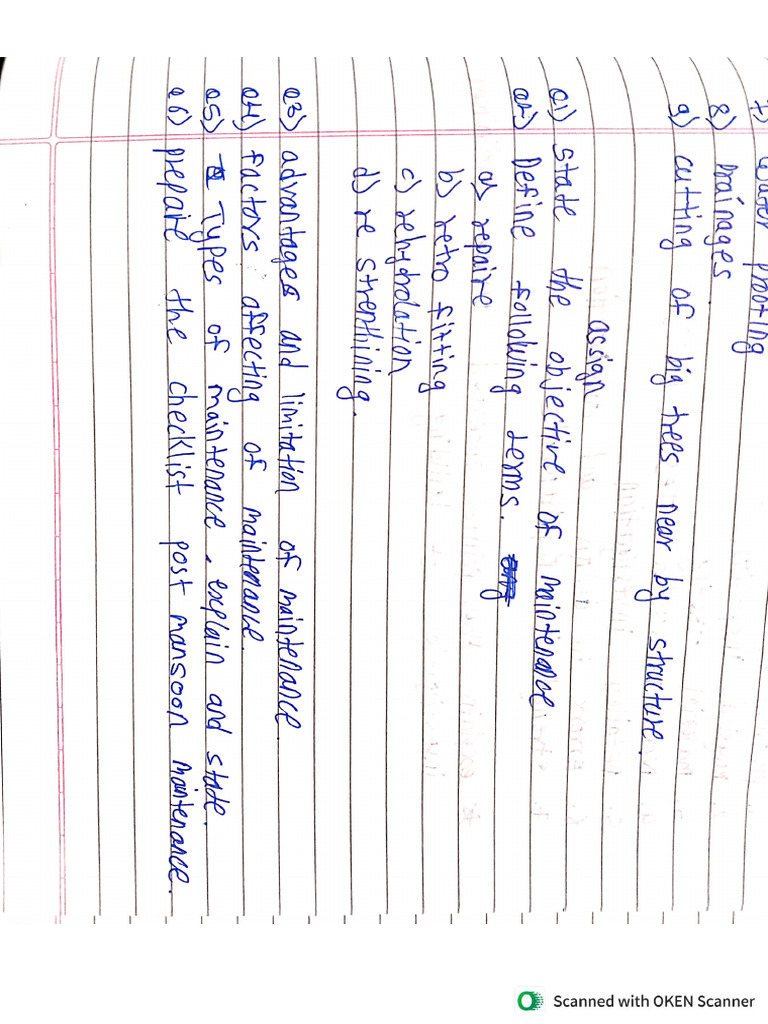 7) water proofing
8) Drainages
9) cutting of big trees near by structure.
assign.
Q1) State the objective of maintenance
Q2) Define following terms.
a) repaire
b) retro fitting
c) rehydrolation
d) re strenthining.
Q3) advantages and limitation of maintenance.
Q4) factors affecting of maintenance.
Q5) Types of maintenance. explain and state.
Q6) prepaire the checklist post mansoon maintenance.
Scanned with OKEN Scanner